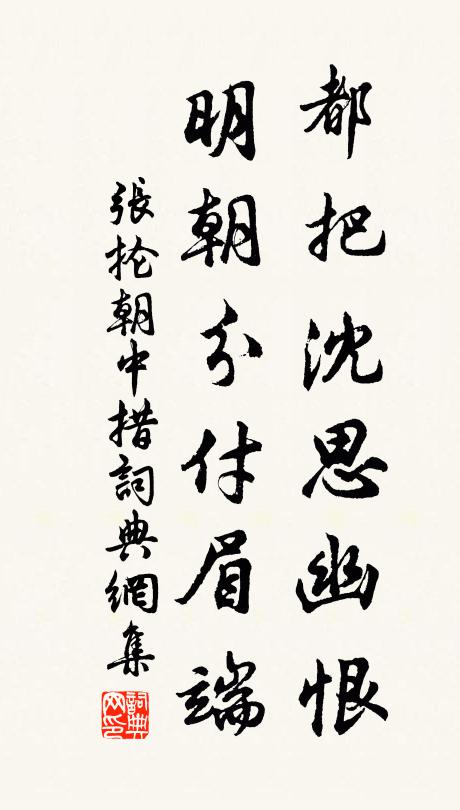 都把沈思幽恨
明朝分付眉端
張掄朝中措詞典網集
詞典网印